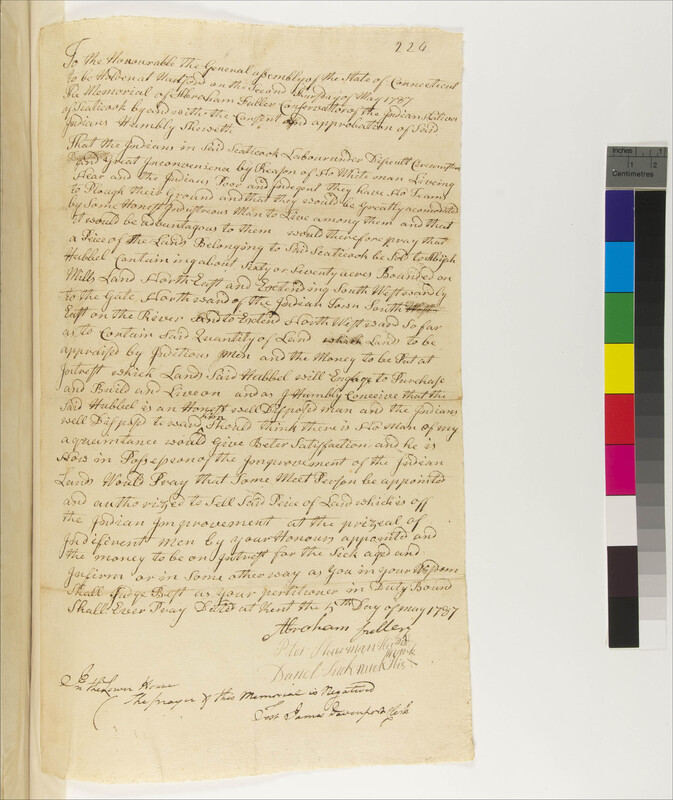 224
To the Honourable the General assembly of the State of Connecticut
to be Holden at Hartford on the Second Thursday of May 1787
The Memorial of Abraham Fuller Conservator of the Indian
of Scaticook by and with the Consent and approbation of Said
Indians Humbly Sheweth
That the Indians in Said Scaticook Labour under Dificult
and Great Inconvenience by Reason of No White man Liveing
Near and the Indians Poor and Indegent they have No Team
to Plough their Ground and that they would be Greatly acomodated
by Some Honest Industrous Man to Live among them and that
it would be advantagous to them would therefore pray that
a Peice of the Lands Belonging to Said Scaticook be Sold to Abijah
Hubbel Containing about Sixty or Seventy acres Bounded on
Mills Land North East and Extending South Westwardly
to the Gate Northward of the Indian Town South West
East on the River and to Extend North West ward So far
as to Contain Said Quantity of Land which Lands to be
appraised by Juditious men and the Money to be Put at
Intrest which Lands Said Hubbel will Engage to Purchase
and Build and Live on and as I Humbly Conceive that the
Said Hubbel is an Honest well Disposed man and the Indians
well Disposed to ward him Should think there is No Man of my
aquaintance would Give Beter Satisfaction and he is
Now in Possession of the Improvement of the Indian
Lands Would Pray that Some Meet Person be appointed
and authorized to Sell Said Peice of Land which is off
the Indian Improvement at the prizeal of
Indiferent Men by your Honours appointed and
the money to be on Intrest for the Sick aged and
Infirm or in Some other way as you in your Wisdom
Shall Judge Best as your petitioner in Duty Bound
Shall Ever Pray Dated at Kent the 5th Day of may 1787
Abraham Fuller
Peter Shearman his mark
Daniel his
In the Lower House
The prayer of this Memorial is Negatived
Test James Davenport Clerk
inches
1
2
Centimetres